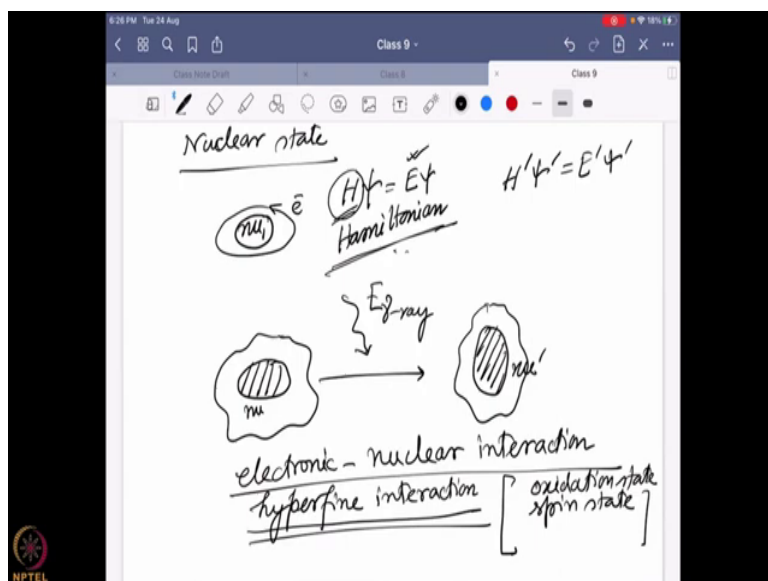 6:26 PM Tue 24 Aug
18%
Class 9
Class Note Draft
Class 8
Class 9
Nuclear state
Hψ = Eψ
H'ψ' = E'ψ'
nu₁ ē
Hamiltonian
Eγ-ray
nu
nu'
electronic - nuclear interaction
hyperfine interaction [ oxidation state
spin state ]
NPTEL